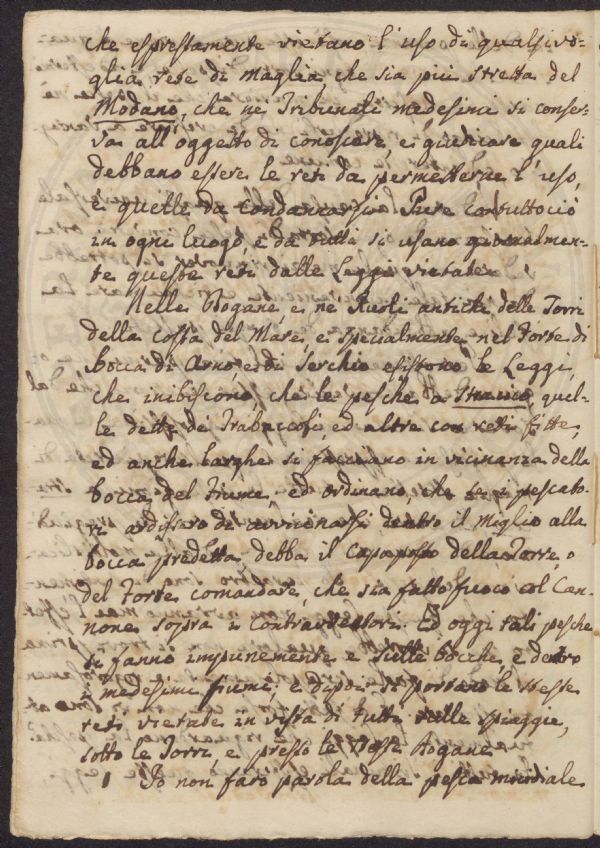 che espressamente vietano l'uso di qualsivo=
glia rete di maglia, che sia più stretta del
Modano, che ne Tribunali medesimi si conser=
va all'oggetto di conoscere, e giudicare quali
debbano essere le reti da permetterne l'uso,
e quelle da condannarsi. Pure contuttociò
in ogni luogo, e da tutti si usano giornalmen=
te queste reti dalle Leggi vietate.
Nelle Dogane, e ne Ruoli antichi delle Torri
della costa del Mare, e specialmente nel Forte di
bocca di Arno, e di Serchio esistono le Leggi,
che inibiscono, che le pesche a Strascico, quel=
le dette de Trabaccoli, ed altre con reti fitte,
ed anche larghe si facciano in vicinanza della
bocca del Fiume, ed ordinano, che se i pescato=
ri ardissero di avvicinarsi dentro il Miglio alla
bocca predetta, debba il Capoposto della Torre, o
del Forte comandare, che sia fatto fuoco col Can=
none sopra i Contravventori. Ed oggi tali pesche
si fanno impunemente e sulle bocche, e dentro
i medesimi fiumi; e di poi si portano le stesse
reti vietate in vista di tutti sulle spiaggie,
sotto le Torri, e presso le stesse Dogane.
Io non farò parola della pesca micidiale